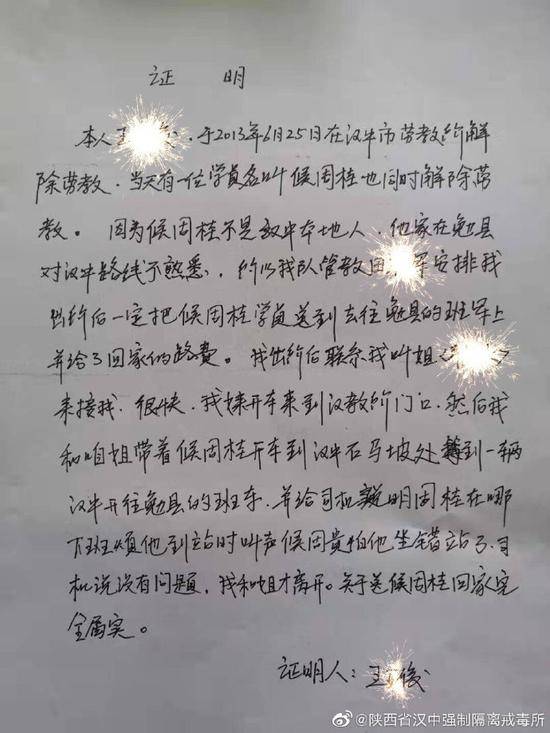 证 明
本人王 俊，于2013年6月25日在汉中市劳教所解
除劳教，当天有一位学员名叫候周桂也同时解除劳
教。因为候周桂不是汉中本地人，他家在勉县
对汉中路线不熟悉，所以我队管教田 军安排我
出所后一定把候周桂学员送到去往勉县的班车上
并给了回家的路费。我出所后联系我叫姐
来接我，很快，我姝开车来到汉教所门口，然后我
和咱姐带着候周桂开车到汉中石马坡处 到一辆
汉中开往勉县的班车，并给司机 明周桂在哪
下班烦他到站时叫声候周贵怕他坐错站了，司
机说没有问题，我和姐才离开。关于送候周桂回家完
全属实。
证明人：王 俊
@陕西省汉中强制隔离戒毒所